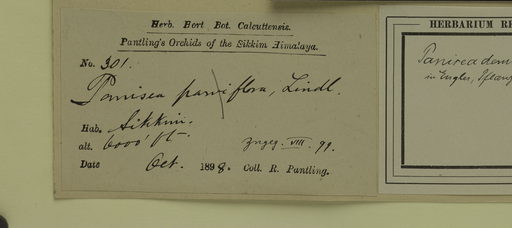 Herb. Hort. Bot. Calcuttensis.
Pantling's Orchids of the Sikkim Himalaya.
No. 301.
Panisea parviflora, Lindl.
Hab. Sikkim.
alt. 6000 ft.
Date Oct. 1898. Coll. R. Pantling.
VIII. 99.
HERBARIUM RE
Panisea dem
in Engler,